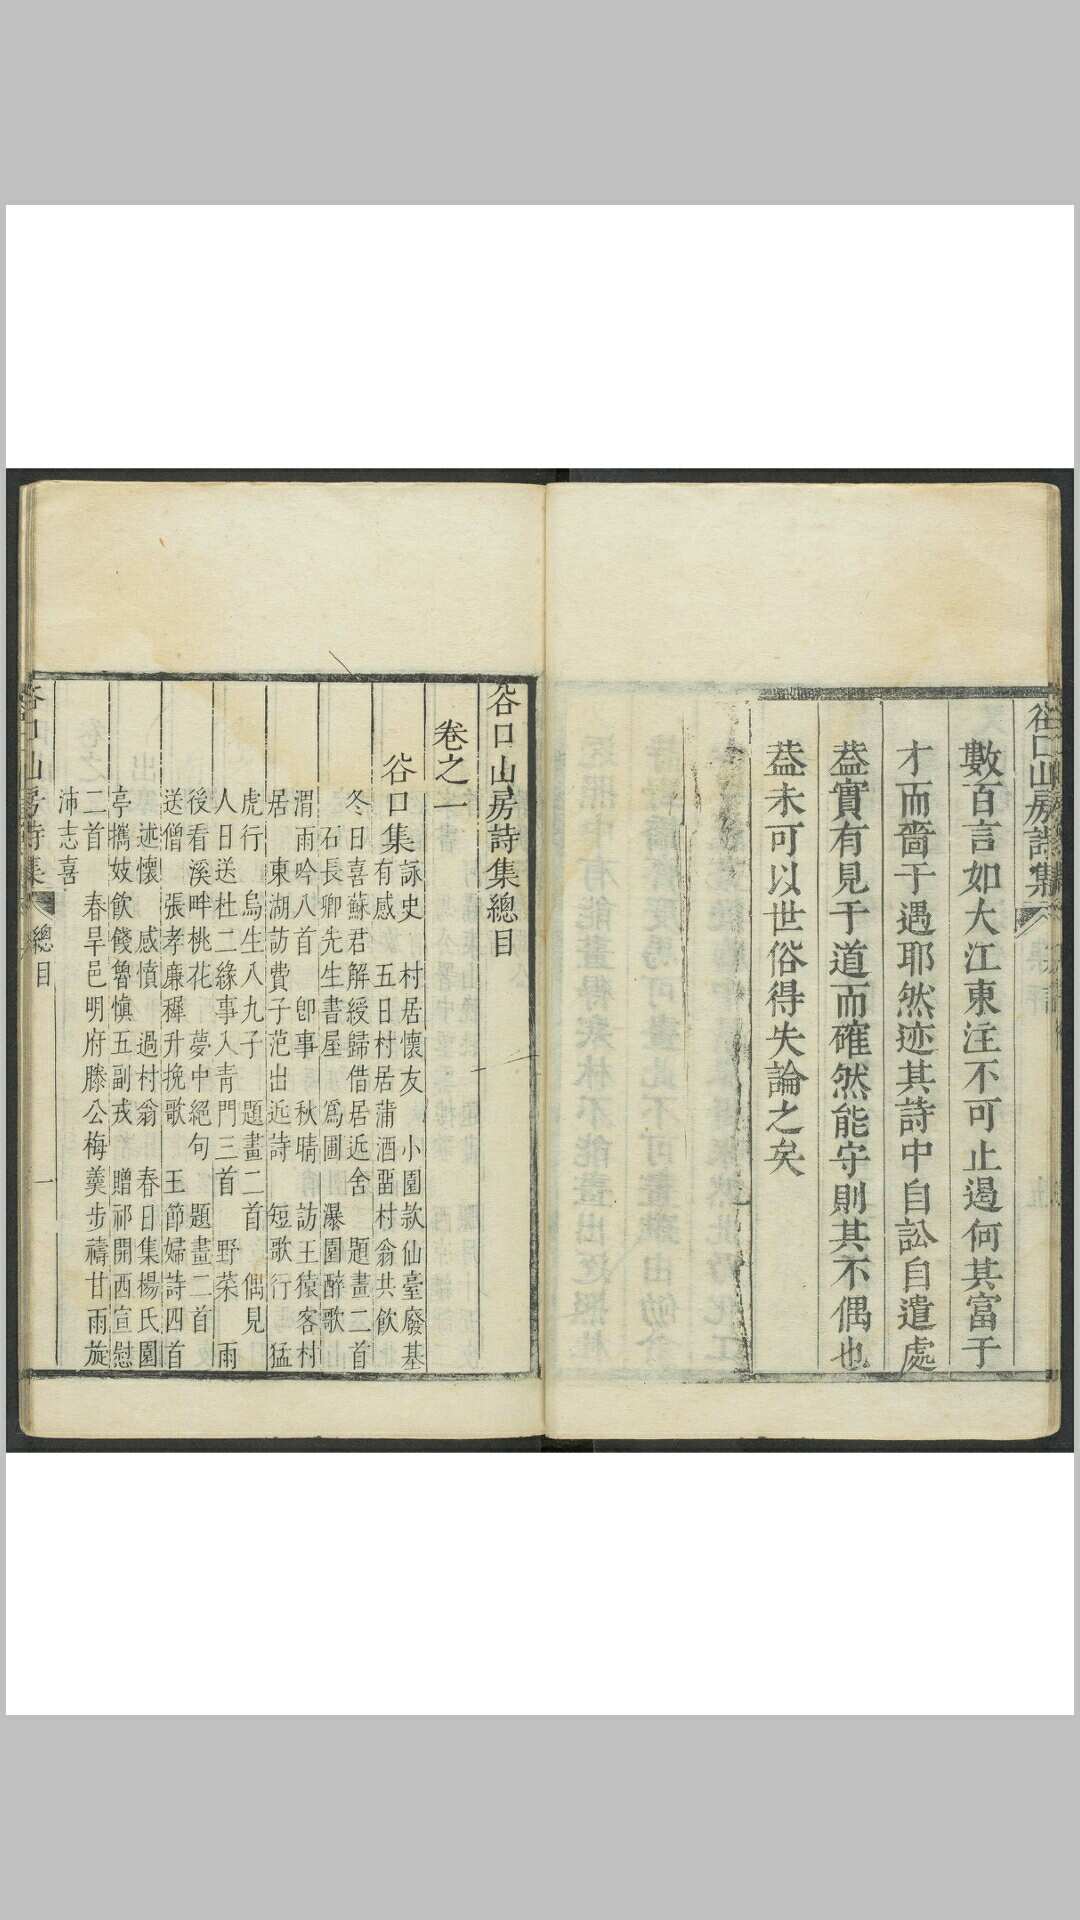 谷口山房詩集
數百言如大江東注不可止遏何其富于
才而嗇于遇耶然迹其詩中自訟自遣處
葢實有見于道而確然能守則其不偶也
葢未可以世俗得失論之矣
谷口山房詩集總目
卷之一
谷口集
詠史　村居懷友　小園款仙臺廢基
有感　五日村居蒲酒畱村翁共飲
冬日喜蘇君解綬歸借居近舍　題畫二首
石長卿先生書屋爲圃　瀑園醉歌
渭雨吟八首　卽事　秋晴　訪王猿客村
居　東湖訪費子范出近詩　短歌行　猛
虎行　烏生八九子　題畫二首　偶見
人日送杜二緣事入青門三首　野菜　雨
後看溪畔桃花　夢中絕句　題畫二首
送僧　張孝廉穉升挽歌　王節婦詩四首
述懷　感憤　過村翁　春日集楊氏園
亭攜妓飲餞魯愼五副戎　贈祁開西宣慰
二首　春旱邑明府滕公梅羹步禱甘雨旋
沛志喜
谷口山房詩集　總目　一